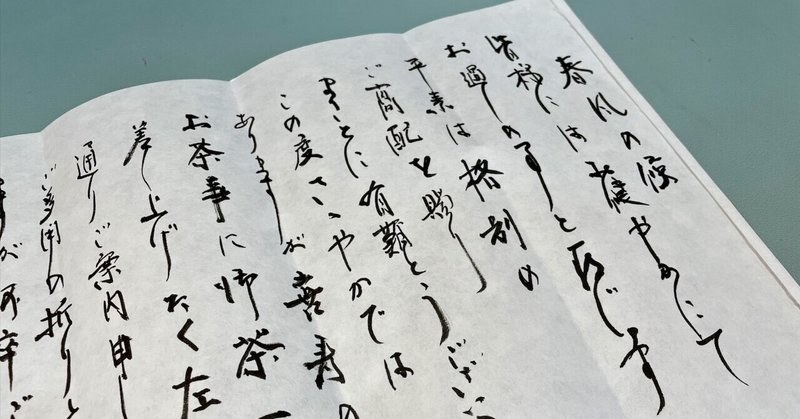 春風の候 健やかにて
皆様には
お過しの事と存じます
平素は格別の
ご高配を賜り
まことに有難とうござい
この度さゝやかでは
ありますが喜寿の
お茶事に御茶一
差し上げたく左
通りご案内申し
ご多用の折りと
が